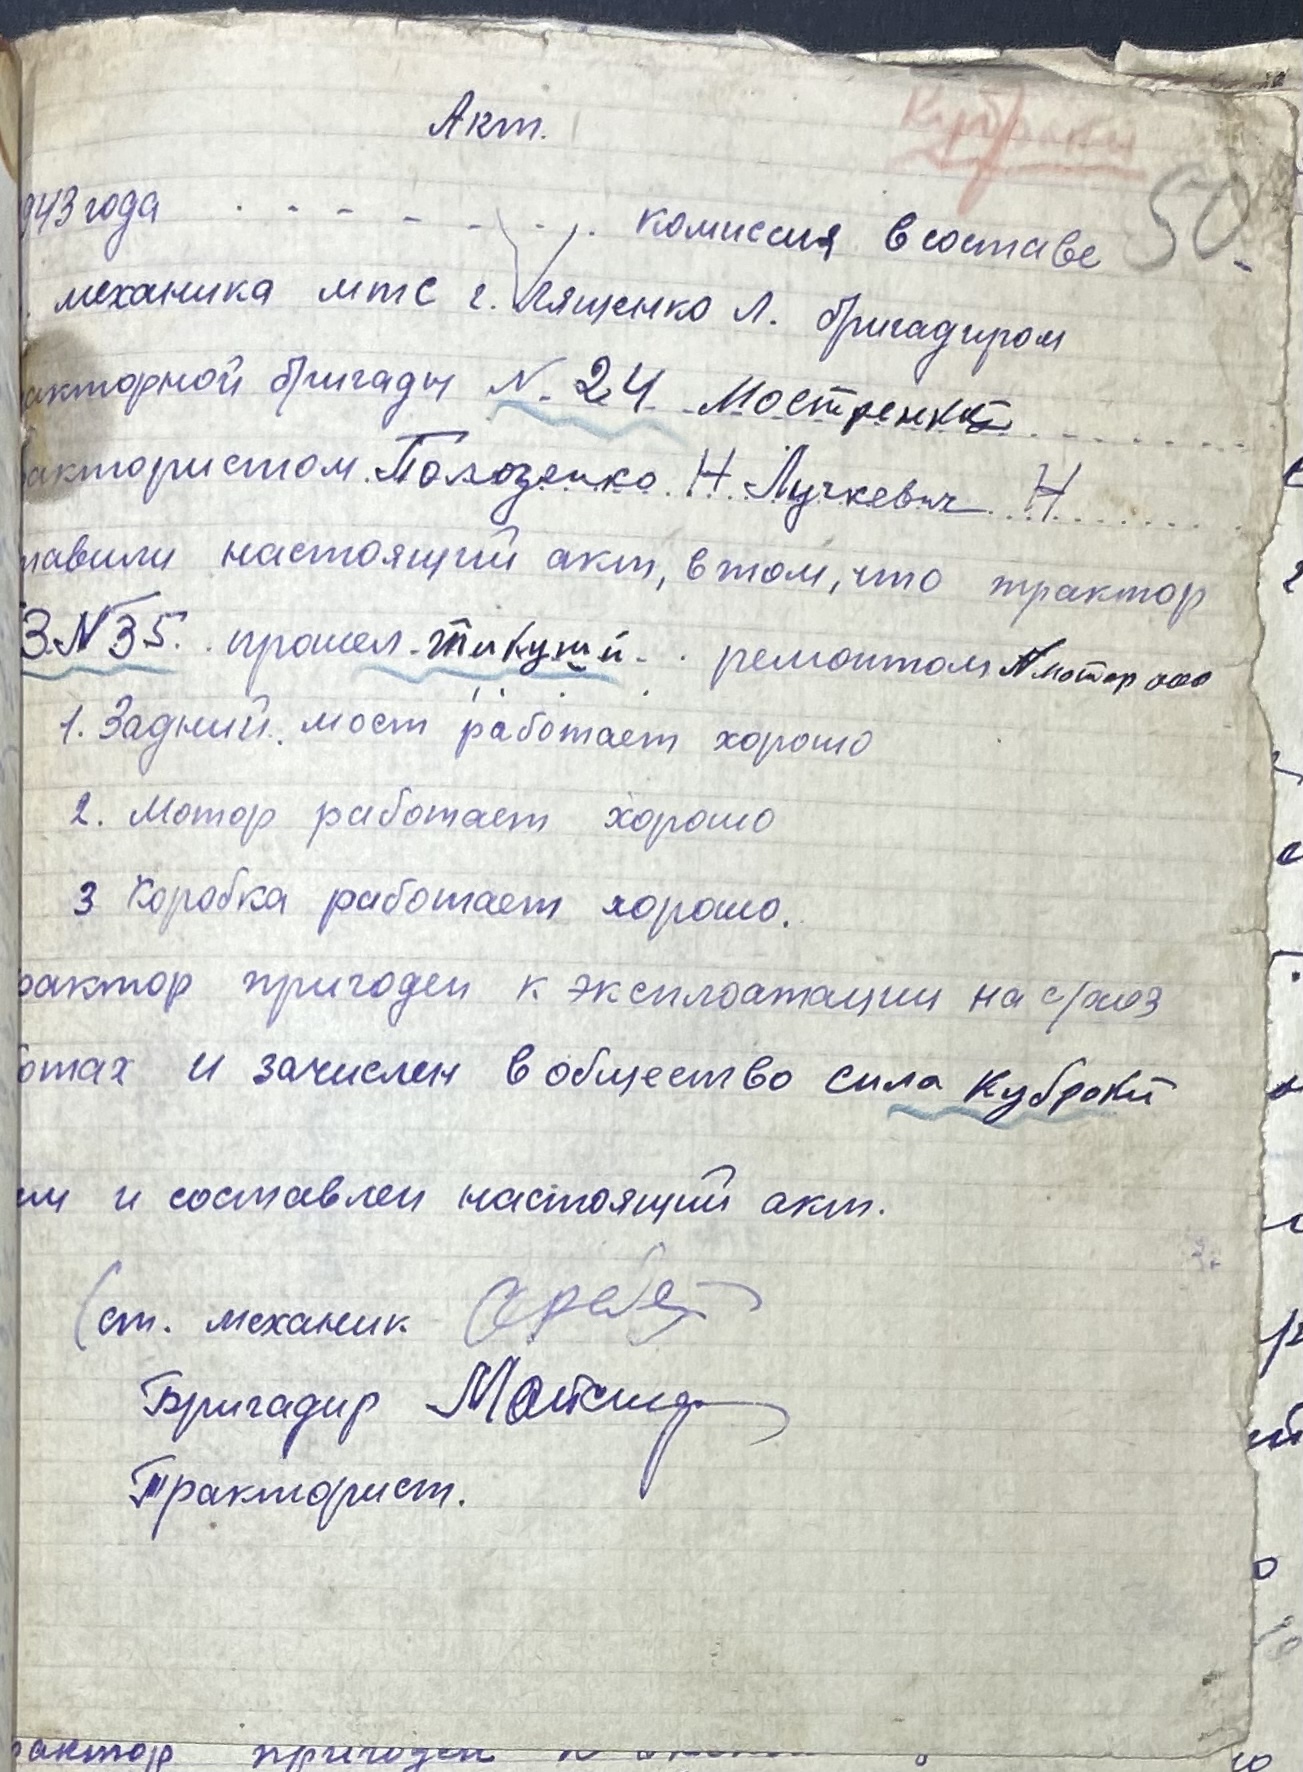 Кубраки
Акт.
50
943 года комиссия в составе
механика мтс г. Лященко Л. бригадиром
акторной бригады N. 24
актористом Н. Лучкевич Н
тавили настоящий акт, в том, что трактор
З.N35. прошел тикущий ремонтом N мотор 000
1. Задний мост работает хорошо
2. Мотор работает хорошо
3 Коробка работает хорошо.
рактор пригоден к эксплоатации на с/хоз
отах и зачислен в общество села Кубраки
им и составлен настоящий акт.
Ст. механик
Бригадир
Тракторист.
рактор пригоден к